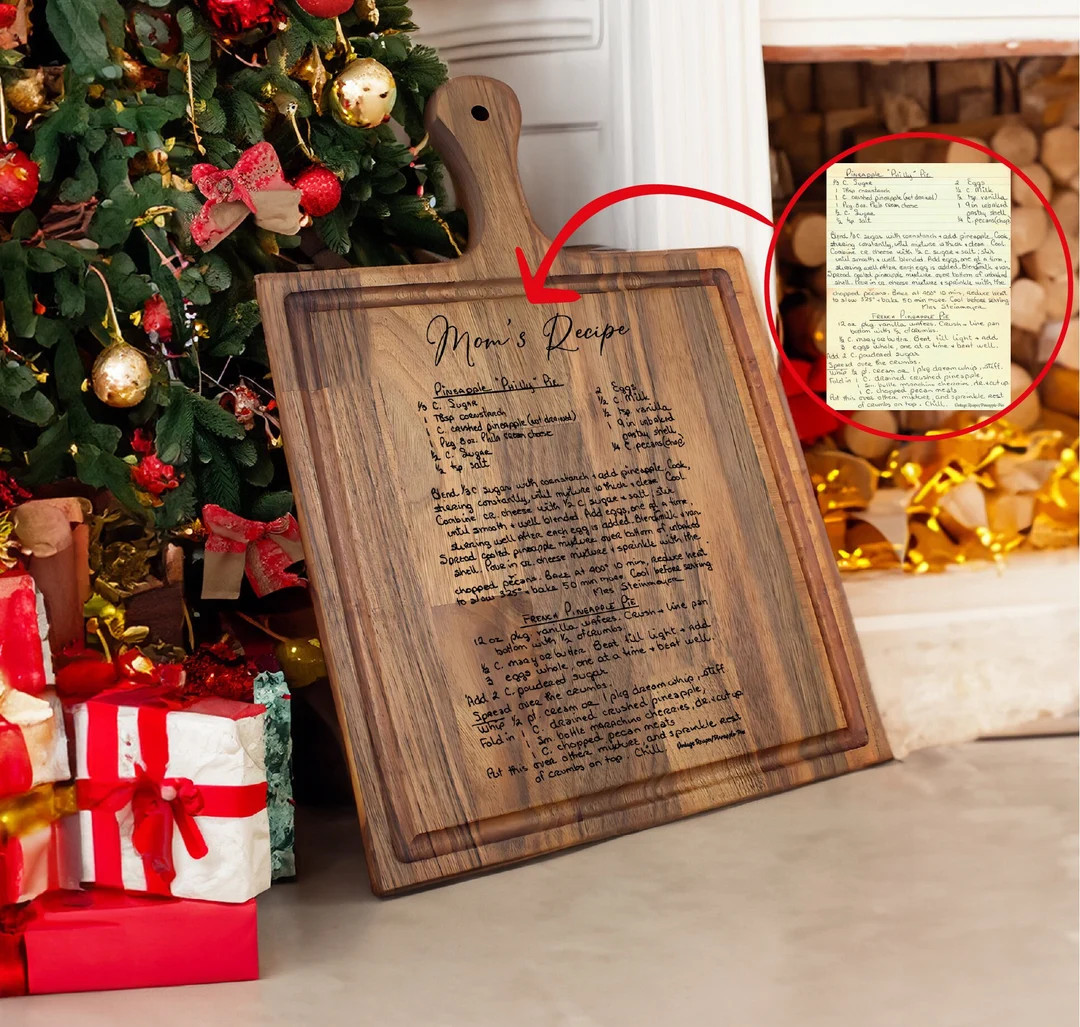 Mom's Recipe
Pineapple "Philly" Pie
⅓ C. Sugar
1 Tbsp cornstarch
1 C. crushed pineapple (not drained)
1 Pkg 8oz. Phila cream cheese
½ C. Sugar
½ tsp salt
2 Eggs
½ C. Milk
½ tsp vanilla
1 9 in unbaked
pastry shell
¼ C. pecans (chop)
Blend ⅓ C sugar with cornstarch + add pineapple. Cook,
stirring constantly, until mixture is thick + clear. Cool
Combine cr. cheese with ½ C. sugar + salt. Stir
until smooth + well blended. Add eggs, one at a time,
stirring well after each egg is added. Blend milk + van
Spread cooled pineapple mixture over bottom of unbaked
shell. Pour in cr. cheese mixture + sprinkle with the
chopped pecans. Bake at 400° 10 min, reduce heat
to slow 325° + bake 50 min more. Cool before serving
Mrs Steinmeyer
French Pineapple Pie
12 oz pkg vanilla wafers. Crush + line pan
bottom with ½ of crumbs.
½ C. marg or butter. Beat till light + add
3 eggs whole, one at a time + beat well.
Add 2 C. powdered sugar
Spread over the crumbs.
Whip ½ pt. cream or 1 pkg dream whip, stiff.
Fold in 1 C. drained crushed pineapple,
1 sm bottle maraschino cherries, dr. + cut up
1 C. chopped pecan meats
Put this over other mixture and sprinkle rest
of crumbs on top. Chill.
Pineapple "Philly" Pie
⅓ C. Sugar
1 Tbsp cornstarch
1 C. crushed pineapple (not drained)
1 Pkg 8oz. Phila cream cheese
½ C. Sugar
½ tsp salt
2 Eggs
½ C. Milk
½ tsp. vanilla
1 9 in unbaked
pastry shell
¼ C. pecans (chop)
Blend ⅓ C. sugar with cornstarch + add pineapple. Cook,
stirring constantly, until mixture is thick + clear. Cool
Combine cr. cheese with ½ C. sugar + salt. Stir
until smooth + well blended. Add eggs, one at a time,
stirring well after each egg is added. Blend milk + van
Spread cooled pineapple mixture over bottom of unbaked
shell. Pour in cr. cheese mixture + sprinkle with the
chopped pecans. Bake at 400° 10 min, reduce heat
to slow 325° + bake 50 min more. Cool before serving
Mrs Steinmeyer
French Pineapple Pie
12 oz pkg vanilla wafers. Crush + line pan
bottom with ½ of crumbs.
½ C. marg or butter. Beat till light + add
3 eggs whole, one at a time + beat well.
Add 2 C. powdered sugar
Spread over the crumbs.
Whip ½ pt. cream or 1 pkg dream whip, stiff.
Fold in 1 C. drained crushed pineapple,
1 sm bottle maraschino cherries, dr. + cut up
1 C. chopped pecan meats
Put this over other mixture and sprinkle rest
of crumbs on top. Chill.